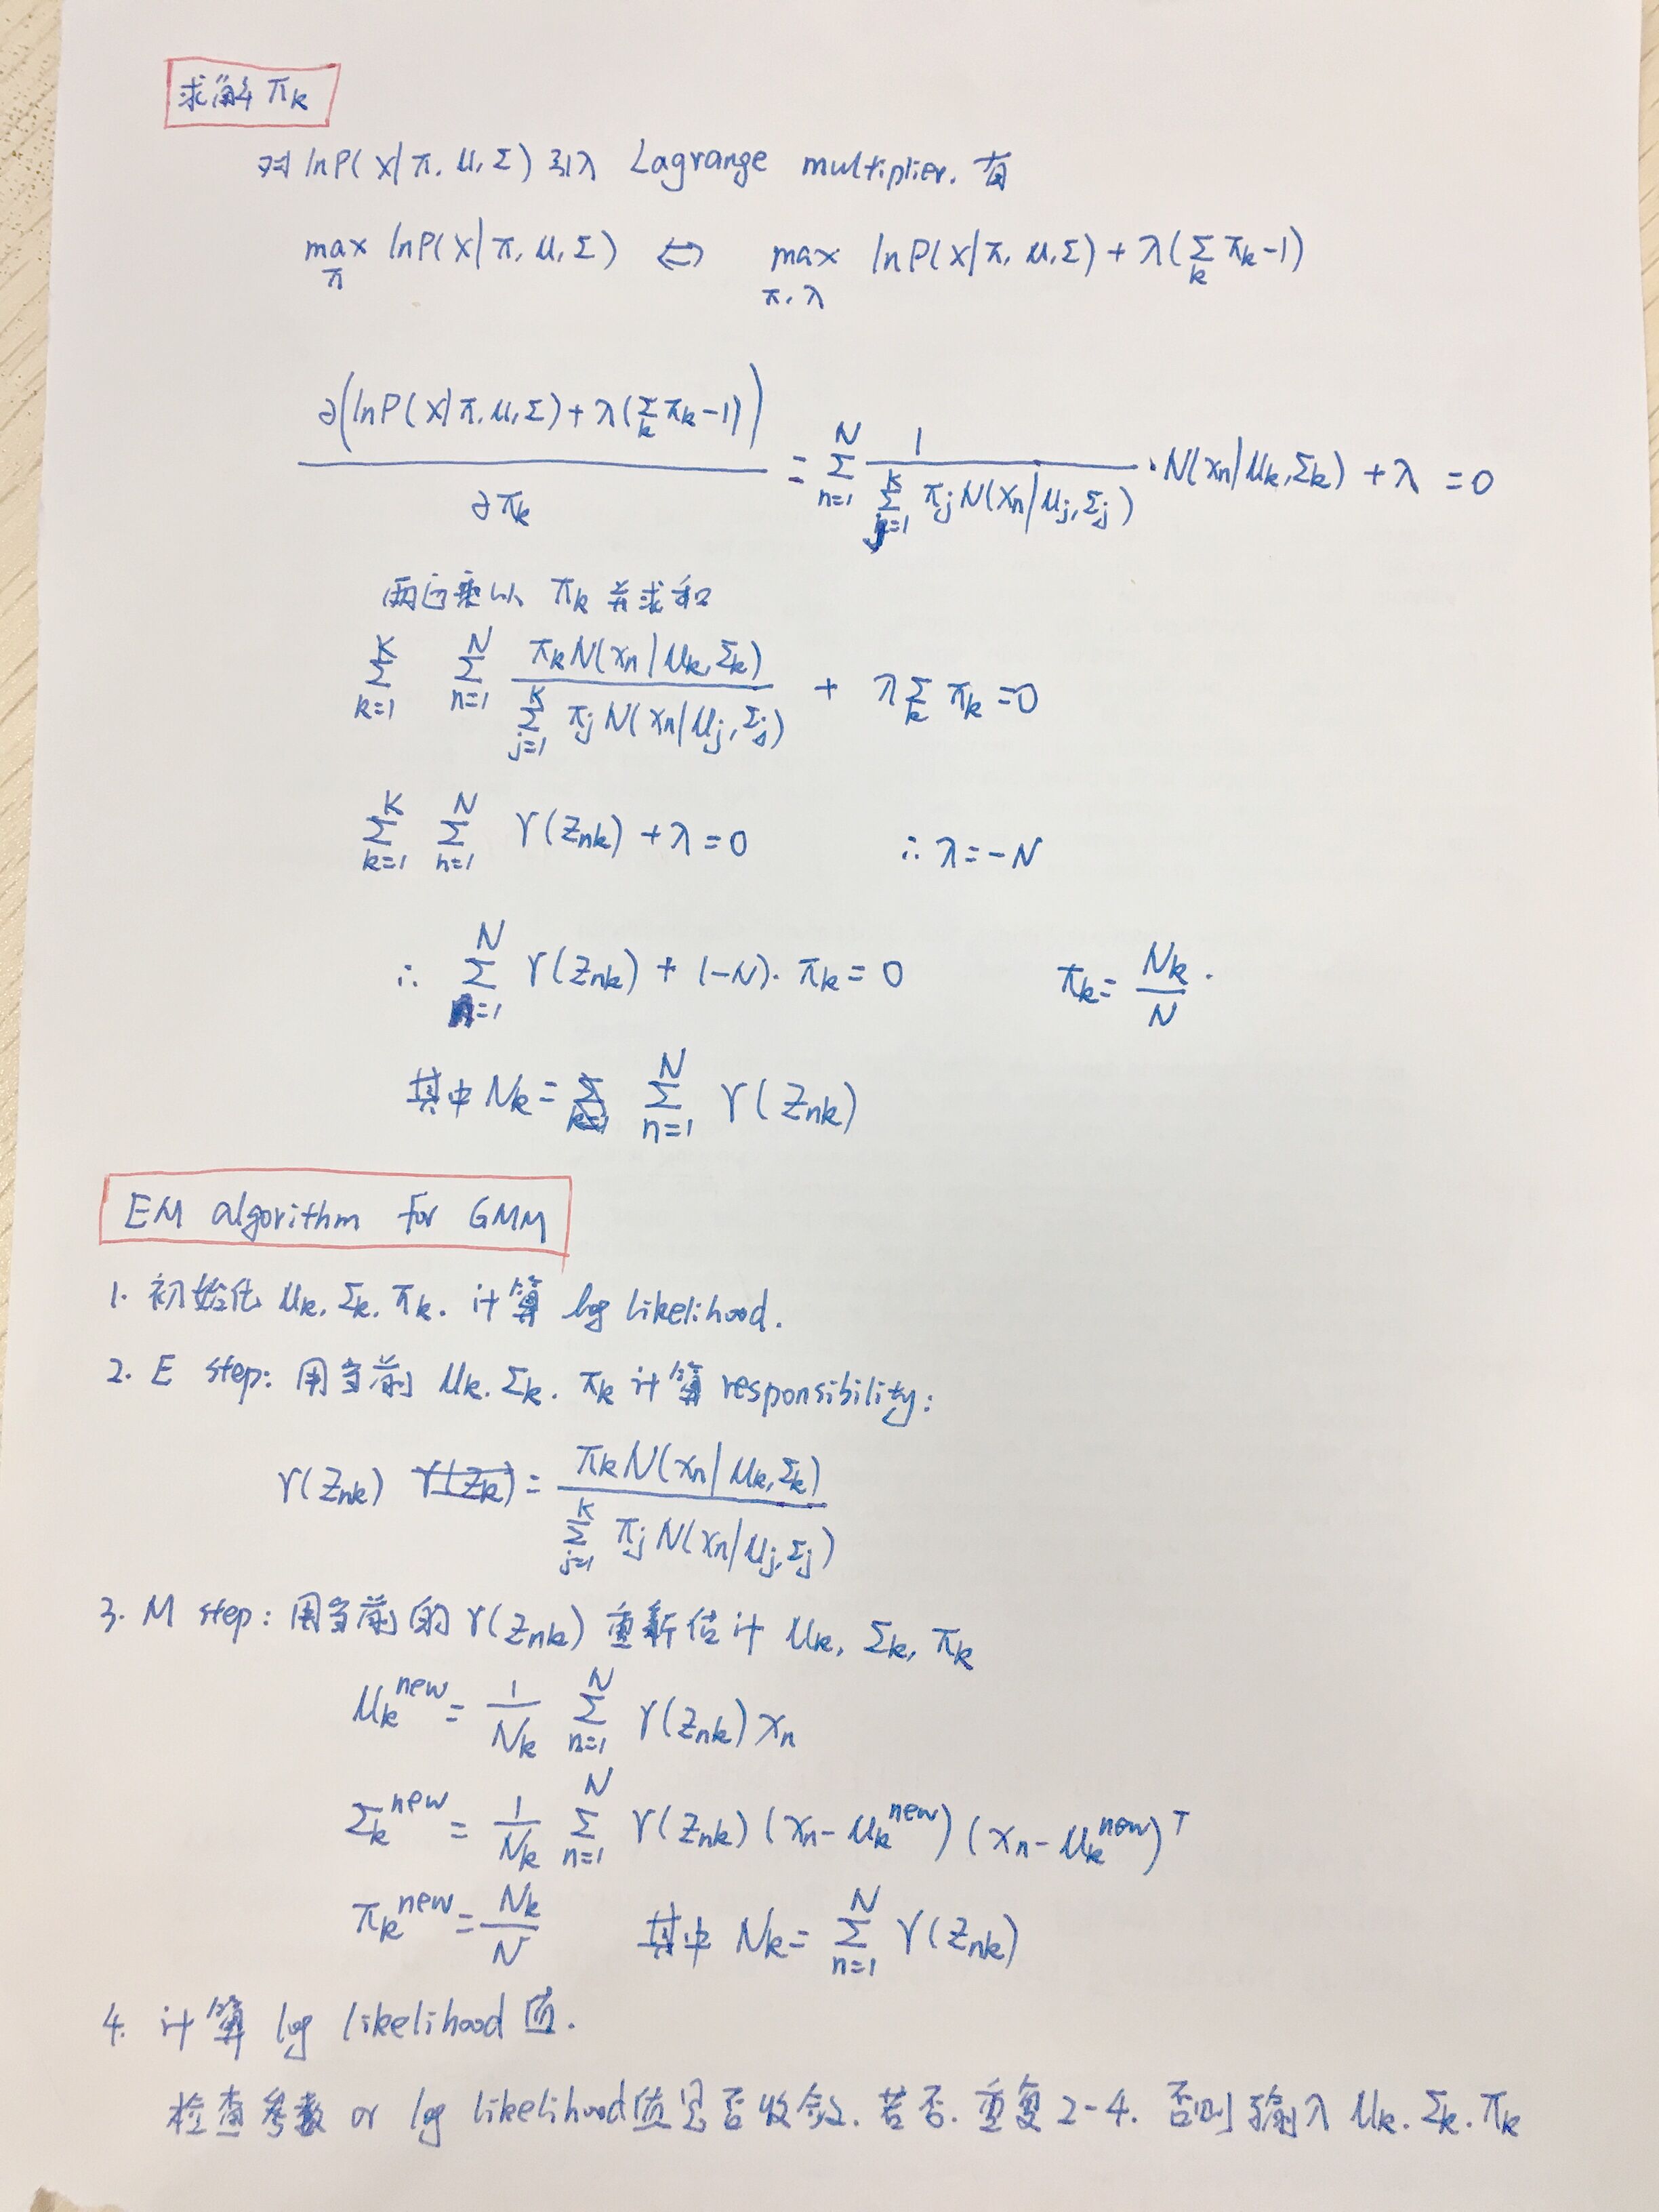 求解 πk
对 lnP(X|π, μ, Σ) 引入 Lagrange multiplier. 有
max_π lnP(X|π, μ, Σ) ⇔ max_{π, λ} lnP(X|π, μ, Σ) + λ(Σ_k π_k - 1)
∂(lnP(X|π, μ, Σ) + λ(Σ_k π_k - 1)) / ∂π_k = Σ_{n=1}^{N} 1 / (Σ_{j=1}^{K} π_j N(x_n|μ_j, Σ_j)) · N(x_n|μ_k, Σ_k) + λ = 0
两边乘以 π_k 并求和
Σ_{k=1}^{K} Σ_{n=1}^{N} π_k N(x_n|μ_k, Σ_k) / (Σ_{j=1}^{K} π_j N(x_n|μ_j, Σ_j)) + λ Σ_k π_k = 0
Σ_{k=1}^{K} Σ_{n=1}^{N} γ(z_nk) + λ = 0 ∴ λ = -N
∴ Σ_{n=1}^{N} γ(z_nk) + (-N)· π_k = 0 π_k = N_k / N .
其中 N_k = Σ_{n=1}^{N} γ(z_nk)
EM algorithm for GMM
1. 初始化 μ_k. Σ_k. π_k. 计算 log likelihood.
2. E step: 用当前 μ_k. Σ_k. π_k 计算 responsibility:
γ(z_nk) = π_k N(x_n|μ_k, Σ_k) / (Σ_{j=1}^{K} π_j N(x_n|μ_j, Σ_j))
3. M step: 用当前的 γ(z_nk) 重新估计 μ_k, Σ_k, π_k
μ_k^new = 1/N_k Σ_{n=1}^{N} γ(z_nk) x_n
Σ_k^new = 1/N_k Σ_{n=1}^{N} γ(z_nk) (x_n - μ_k^new) (x_n - μ_k^new)^T
π_k^new = N_k / N 其中 N_k = Σ_{n=1}^{N} γ(z_nk)
4. 计算 log likelihood 值.
检查参数 or log likelihood 值是否收敛. 若否. 重复 2-4. 否则输入 μ_k. Σ_k. π_k